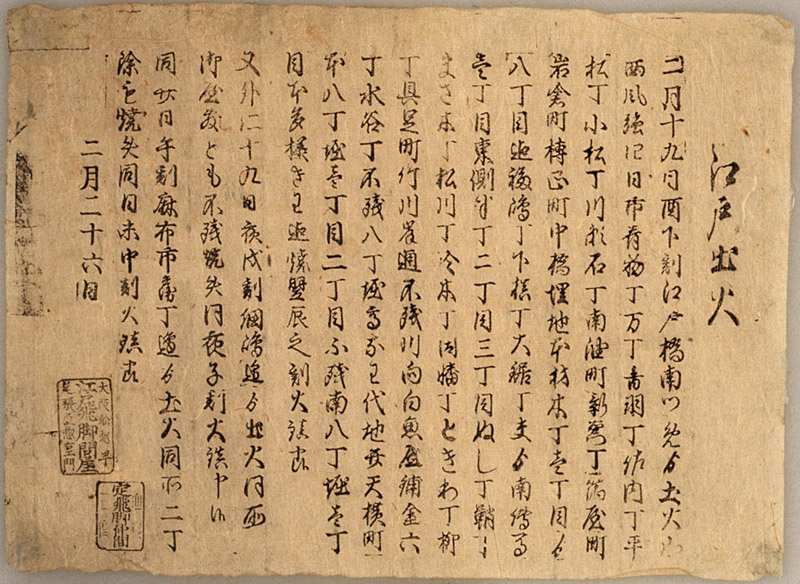 江戸出火
二月十九日酉下刻江戸橋南より出火
西風強く四日市青物丁万丁音羽丁佐内丁平
松丁小松丁川瀬石丁南油町新右衛門丁箔屋町
岩倉町榑正町中橋埋地本材木丁壱丁目より
八丁目迄福嶋丁下槙丁大鋸丁夫より南伝馬
壱丁目東側半丁二丁目三丁目ぬし丁鞘丁
まさ木丁松川丁冷水丁因幡丁ときわ丁柳
丁具足町竹川岸通不残川向白魚屋舗金六
丁水谷丁不残八丁堀 代地 天横町
本八丁堀壱丁目二丁目不残南八丁堀壱丁
目本多様きわ迄焼翌辰之刻火鎮申候
又外に十九日夜戌刻 嶋辺より出火同所
御屋敷とも不残焼失同夜子刻火鎮申候
同廿日午刻麻布市兵衛丁辺より出火同所二丁
余も焼失同日未中刻火鎮申候
二月二十六日
江戸飛脚問屋
定飛脚